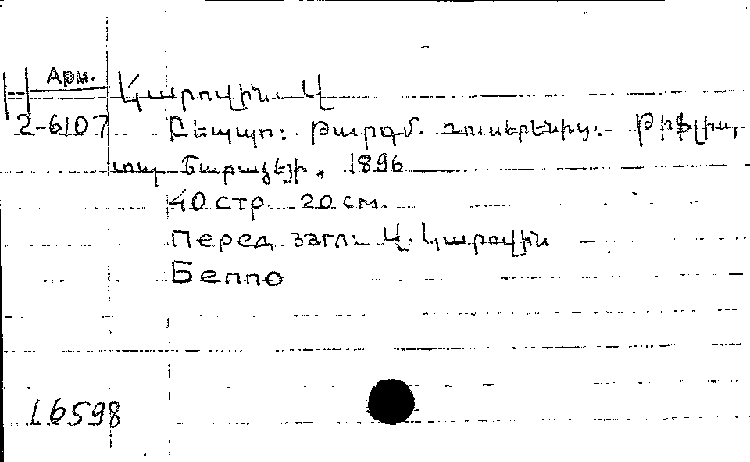 Арм.
Կարովին Վ
2-6107 Բեպպո: Թարգմ. ռուսերենից.- Թիֆլիս,
տպ Շարաձեյի, 1896
40 стр. 20 см.
Перед загл: Վ. Կարովին
Беппо
L6598